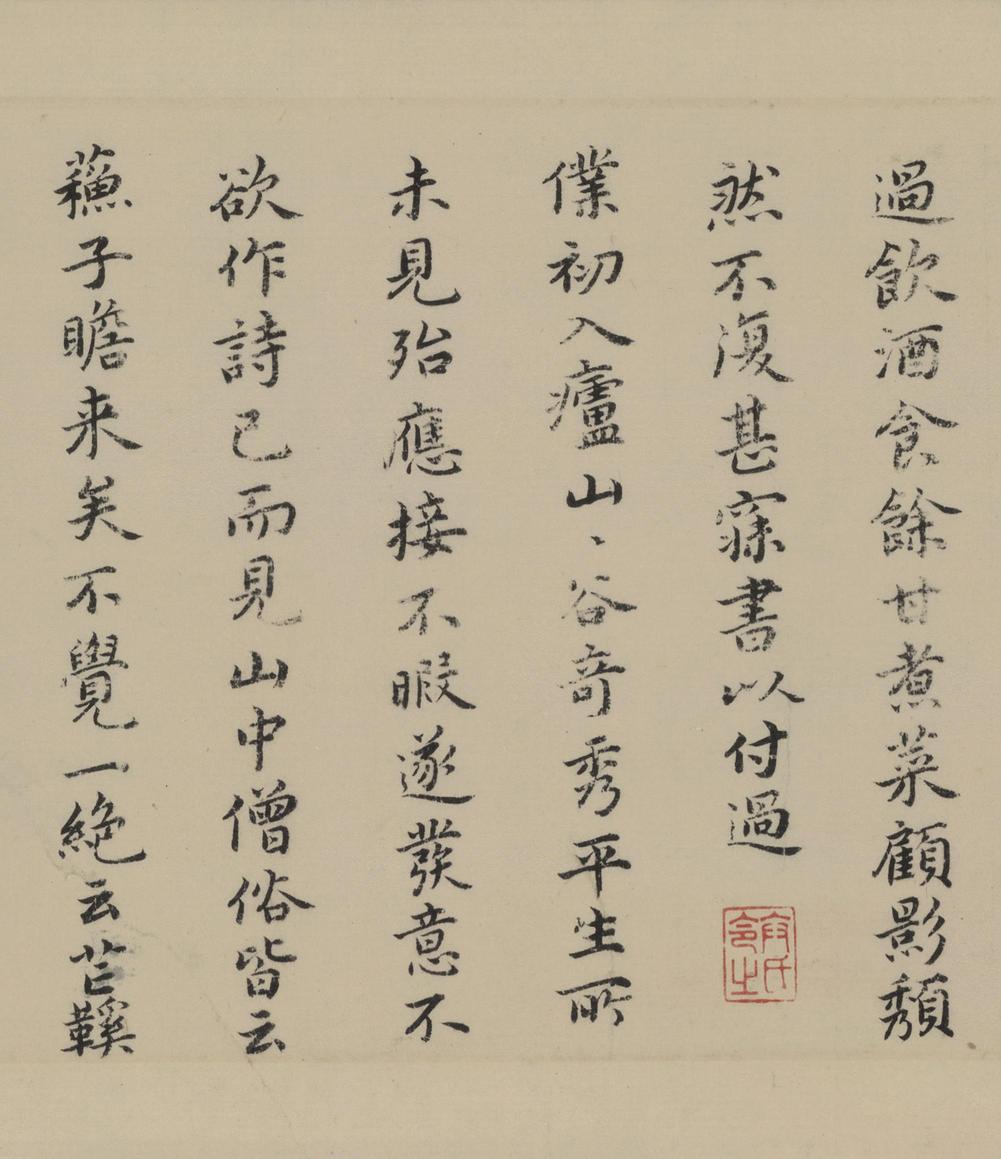 過飲酒食餘甘煮菜顧影頹
然不復甚寐書以付過
僕初入廬山、谷奇秀平生所
未見殆應接不暇遂發意不
欲作詩已而見山中僧俗皆云
蘓子瞻来矣不覺一絶云芒鞵